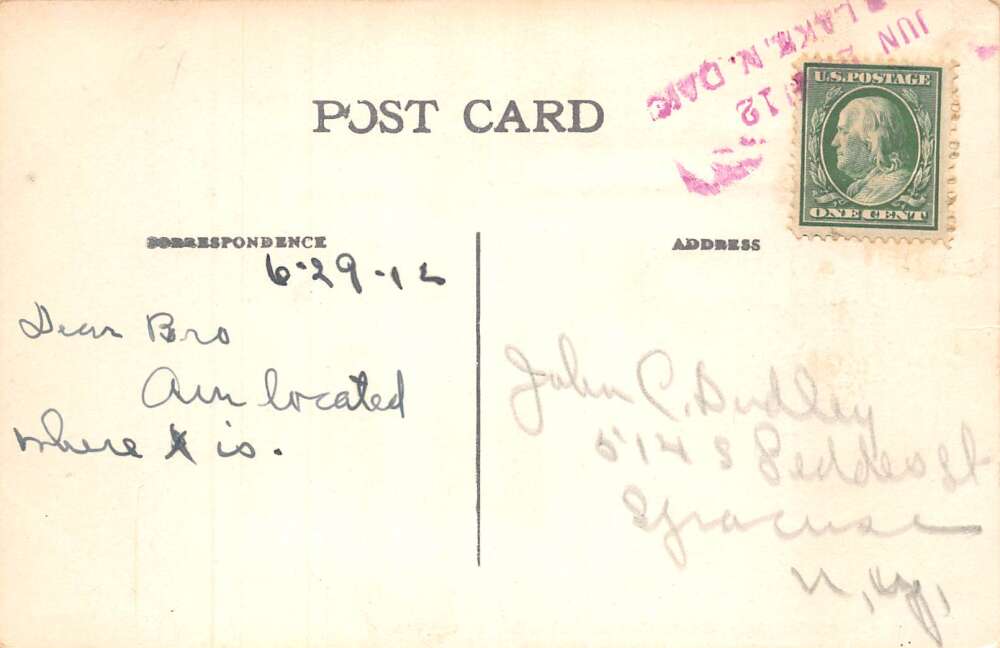 POST CARD
JUN
LAKE, N. DAK
12
U.S. POSTAGE
ONE CENT
CORRESPONDENCE
ADDRESS
6-29-12
Dear Bro
Am located
where X is.
John C. Dudley
514 S
Syracuse
N, Y,